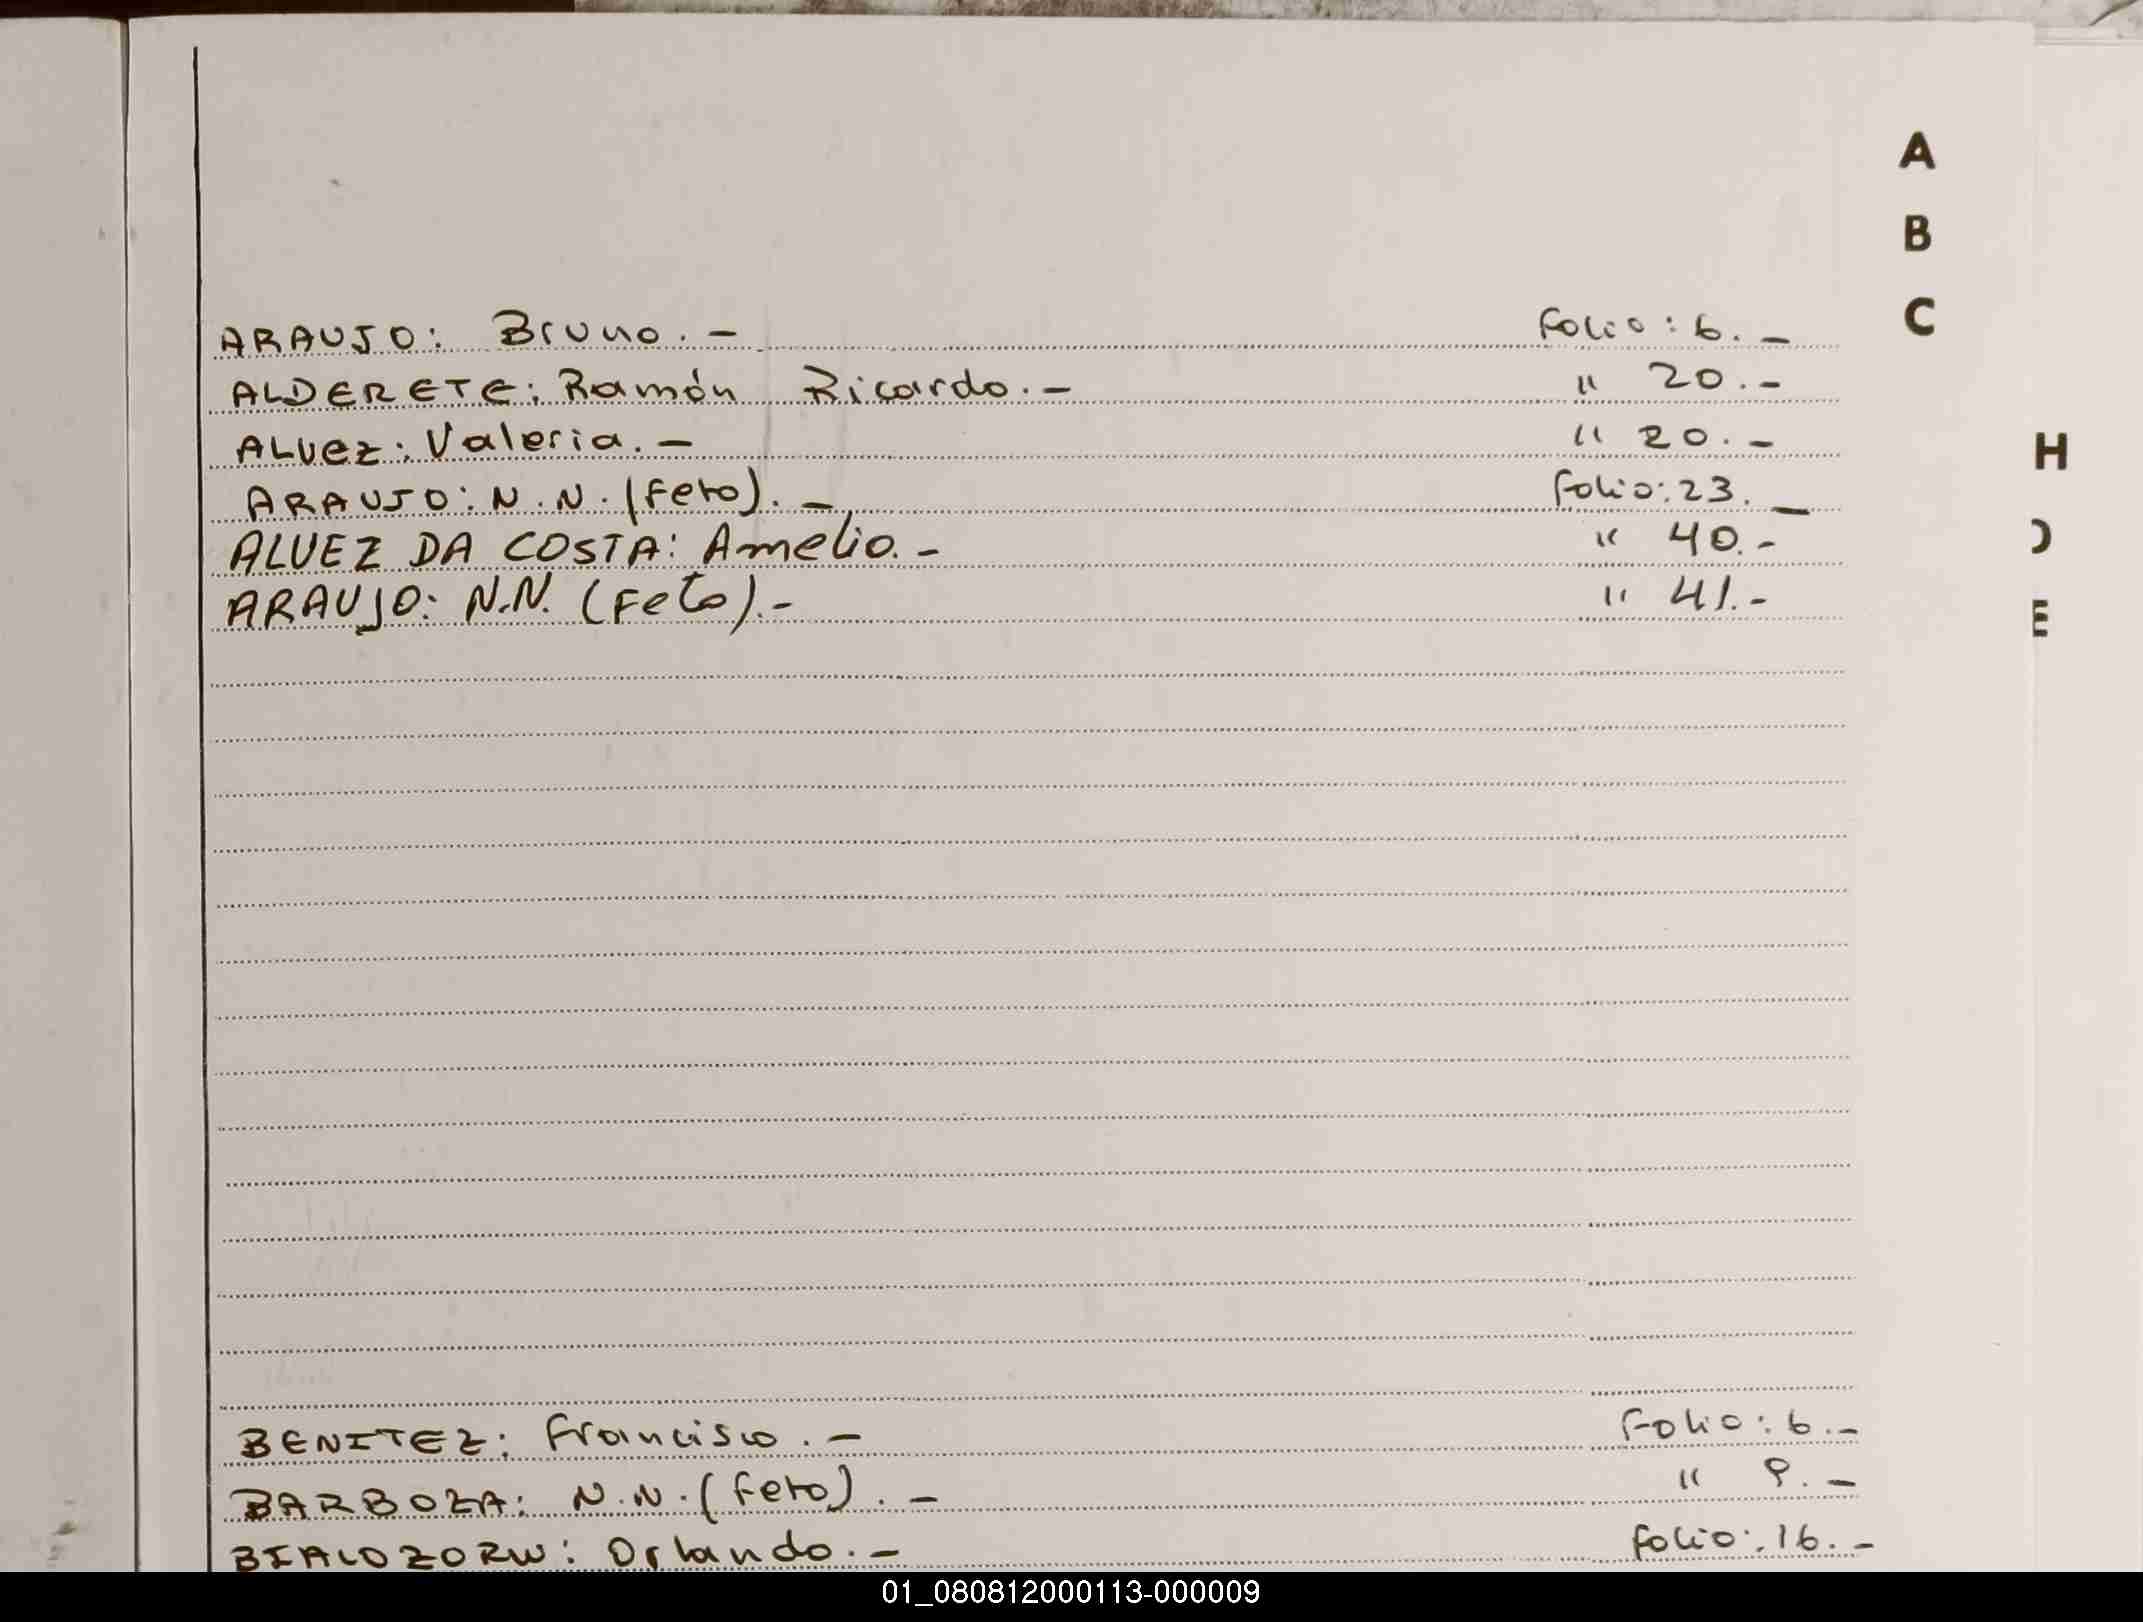 A
B
C
ARAUJO: Bruno.- Folio: 6.-
ALDERETE: Ramón Ricardo.- " 20.-
ALVEZ: Valeria.- " 20.-
H
ARAUJO: N.N. (Feto).- Folio: 23.-
ALVEZ DA COSTA: Amelio.- " 40.-
D
ARAUJO: N.N. (Feto).- " 41.-
E
BENITEZ: Francisco.- Folio: 6.-
BARBOZA: N.N. (Feto).- " 9.-
BIALOZORW: Orlando.- Folio: 16.-
01_080812000113-000009